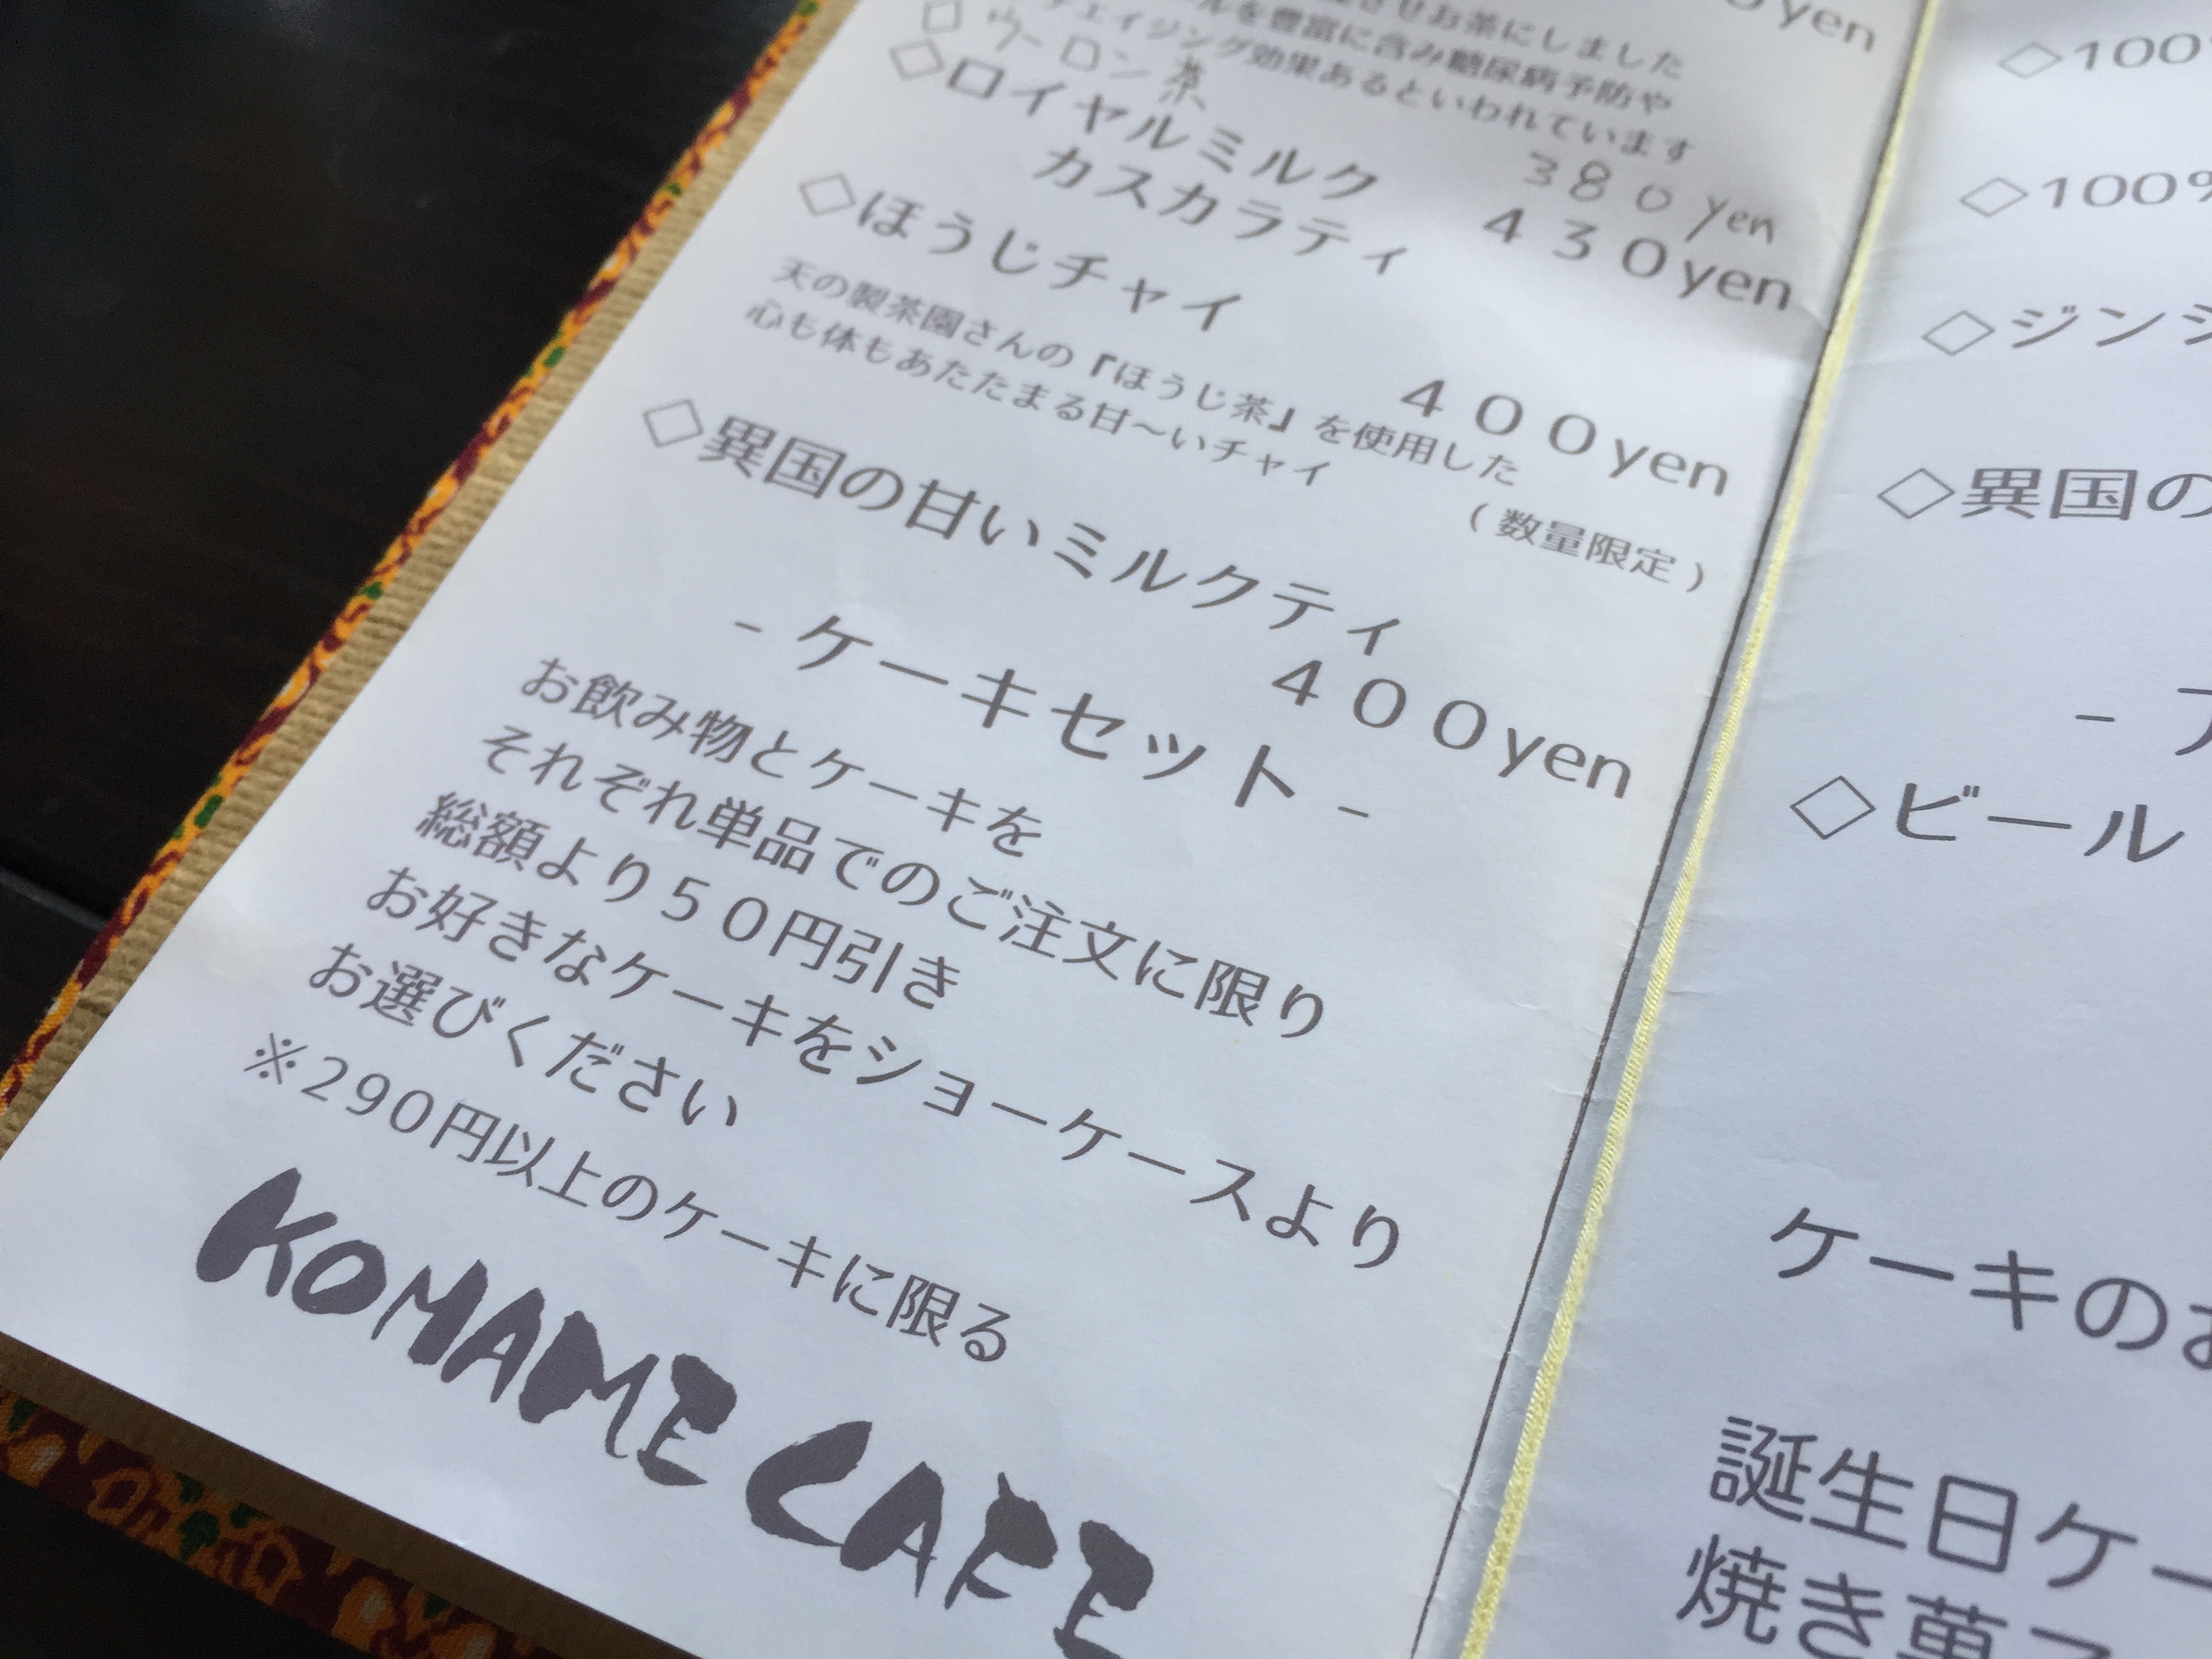 yen
させお茶にしました
ルを豊富に含み糖尿病予防や
エイジング効果あるといわれています
ウーロン茶 380yen
◇ロイヤルミルク
カスカラティ 430yen
◇ほうじチャイ
400yen
天の製茶園さんの『ほうじ茶』を使用した
心も体もあたたまる甘〜いチャイ
(数量限定)
◇異国の甘いミルクティ
400yen
- ケーキセット -
お飲み物とケーキを
それぞれ単品でのご注文に限り
総額より50円引き
お好きなケーキをショーケースより
お選びください
※290円以上のケーキに限る
KOMAME CAFE
◇100
◇100%
◇ジンジ
◇異国の
-
◇ビール
ケーキのお
誕生日ケー
焼き菓子